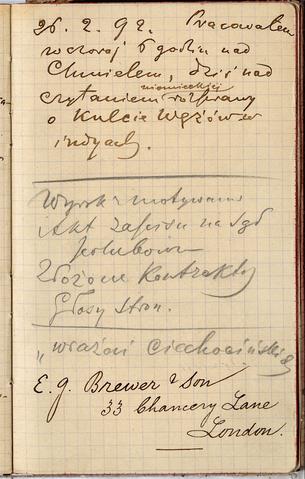 26. 2. 92. Pracowałem
wczoraj 6 godzin nad
Chmielem, dziś nad
niemieckiej
czytaniem rozprawy
o Kulcie Wężów w
indyach.
Wyrok z motywami
Akt zapisu na Sąd
polubowny
Złożone Kontrakty
Głosy stron.
„wrażeń Ciechocińskich
E. G. Brewer & Son
33 Chancery Lane
London.